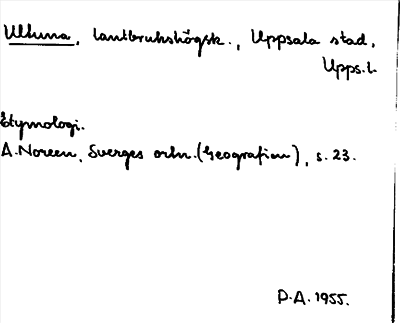 Ultuna, lantbrukshögsk., Uppsala stad,
Upps.l.
Etymologi.
A. Noreen, Sveriges ortn. (Geografien), s. 23.
P.A. 1955.